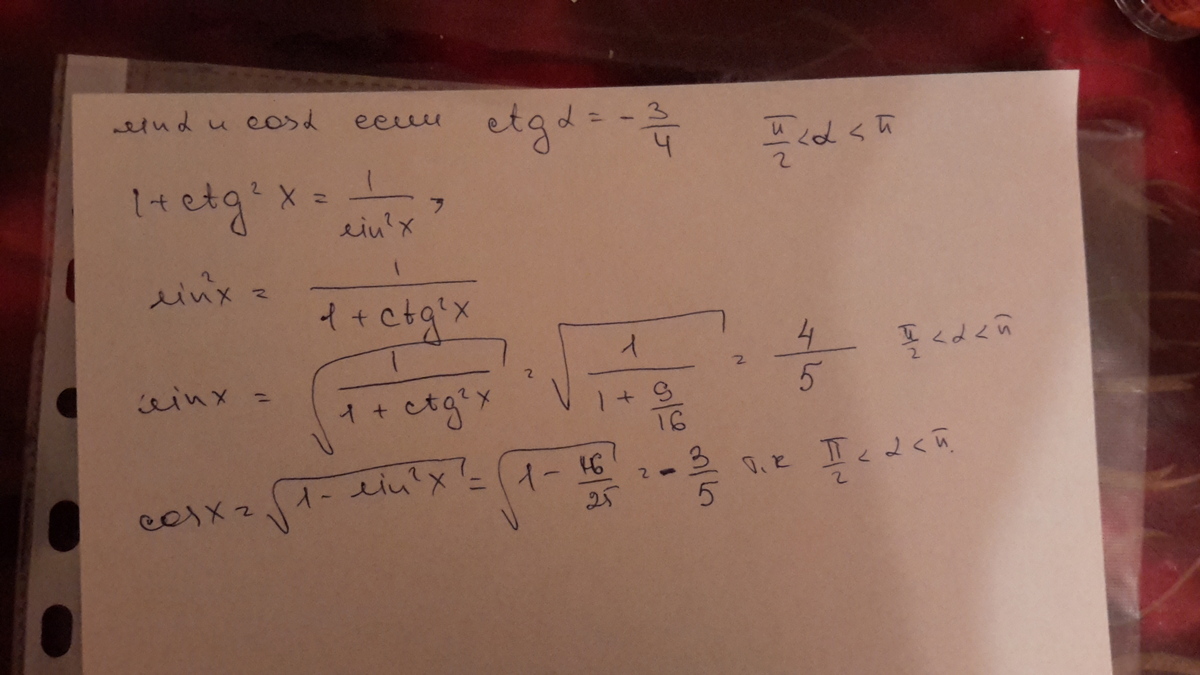 sinα и cosα если ctg α = - 3/4 π/2 < α < π
1 + ctg² x = 1/sin²x ,
sin²x = 1/(1 + ctg²x)
sinx = √(1/(1 + ctg²x)) = √(1/(1 + 9/16)) = 4/5 π/2 < α < π
cosx = √(1 - sin²x) = √(1 - 16/25) = - 3/5 т.к π/2 < α < π.